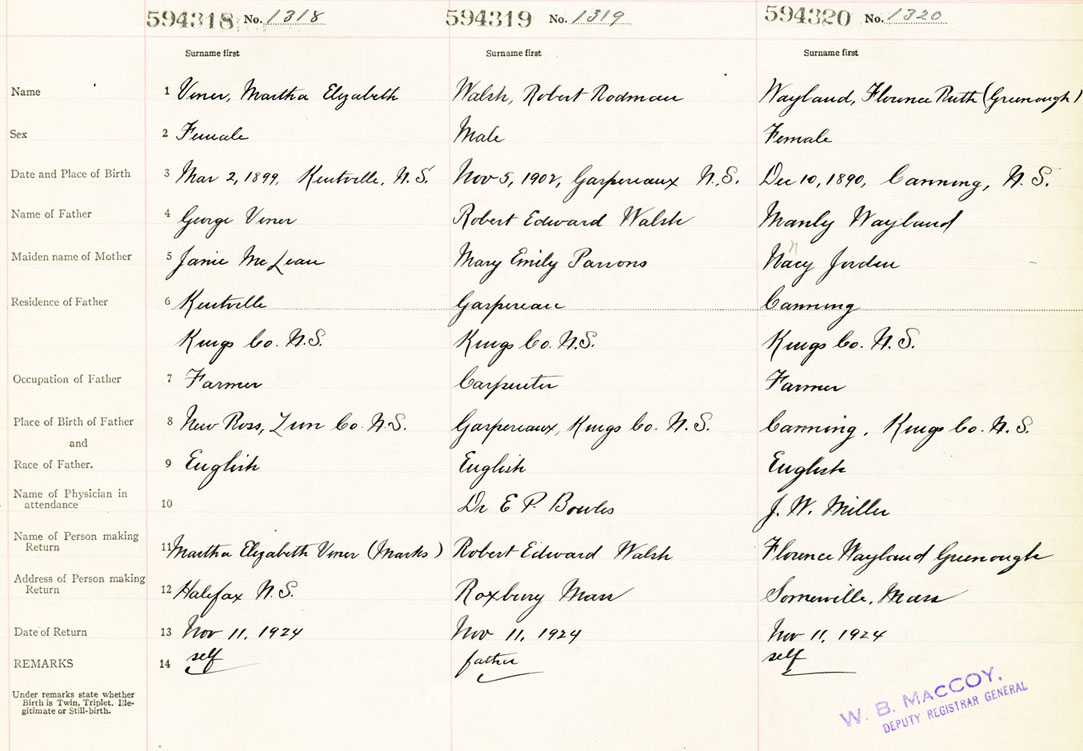 594318 No. 1318 594319 No. 1319 594320 No. 1320
Surname first Surname first Surname first
Name 1 Viner, Martha Elizabeth Walsh, Robert Rodman Wayland, Florence Ruth (Greenough)
Sex 2 Female Male Female
Date and Place of Birth 3 Mar 2, 1899, Kentville, N.S. Nov 5, 1902, Gaspereaux N.S. Dec 10, 1890, Canning, N.S.
Name of Father 4 George Viner Robert Edward Walsh Manly Wayland
Maiden name of Mother 5 Janie McLean Mary Emily Parsons Nacy Jorden
n
Residence of Father 6 Kentville Gaspereau Canning
Kings Co. N.S. Kings Co. N.S. Kings Co. N.S.
Occupation of Father 7 Farmer Carpenter Farmer
Place of Birth of Father 8 New Ross, Lun Co. N.S. Gaspereaux, Kings Co. N.S. Canning, Kings Co. N.S.
and
Race of Father. 9 English English English
Name of Physician in
attendance 10 Dr E P. Bowles J. W. Miller
Name of Person making
Return 11 Martha Elizabeth Viner (Marks) Robert Edward Walsh Florence Wayland Greenough
Address of Person making
Return 12 Halifax N.S. Roxbury Mass Somerville, Mass
Date of Return 13 Nov 11, 1924 Nov 11, 1924 Nov 11, 1924
REMARKS 14 self father self
Under remarks state whether
Birth is Twin, Triplet, Ille-
gitimate or Still-birth.
W. B. MACCOY,
DEPUTY REGISTRAR GENERAL